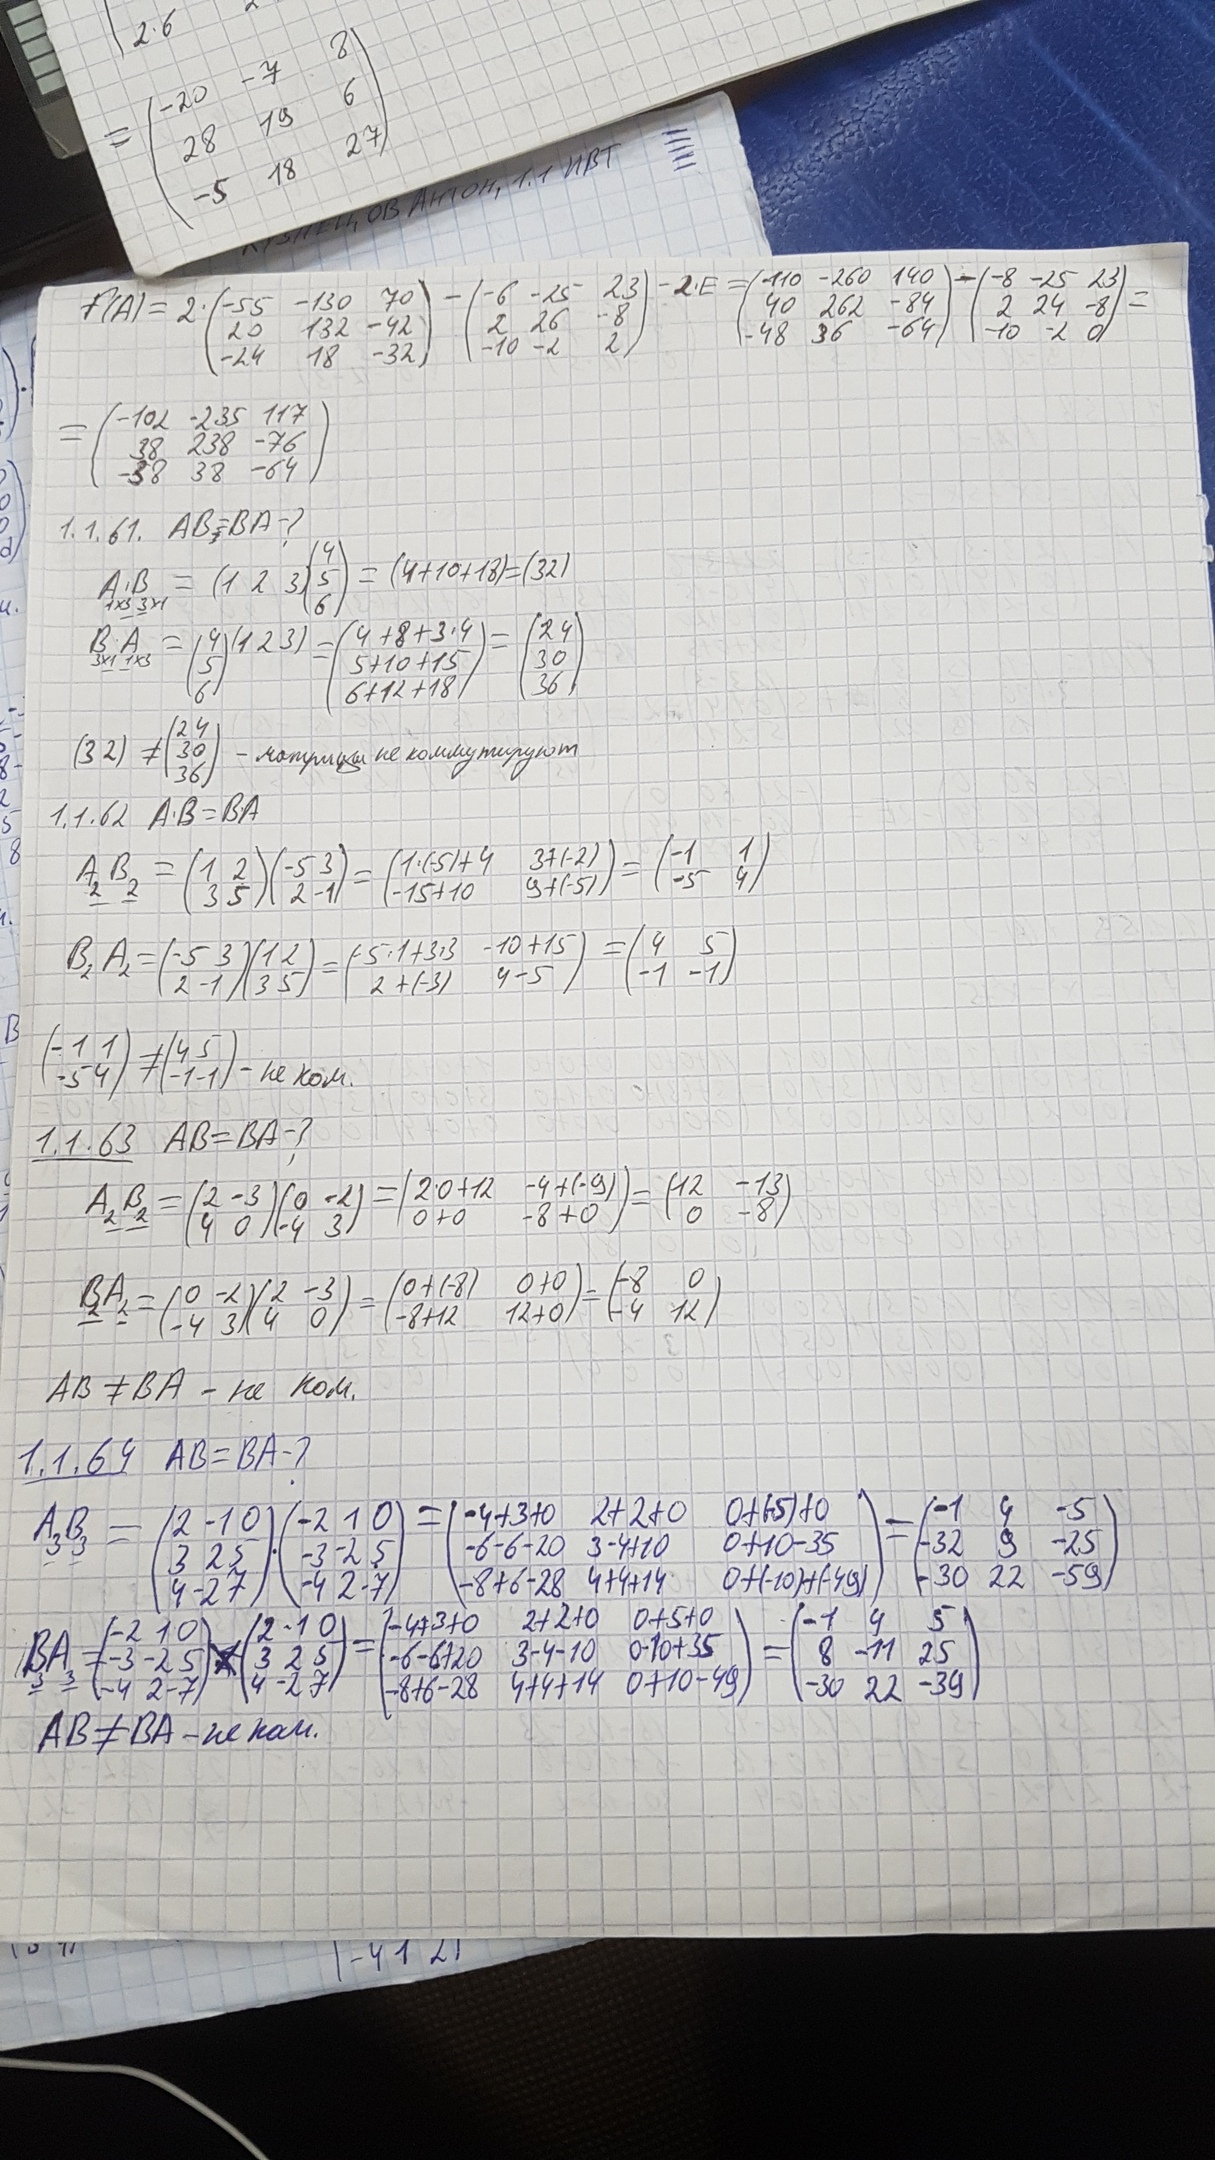 2·6
= (-20 -7 8
28 19 6
-5 18 27)
Антон, 1.1 ИВТ
F(A) = 2·(-55 -130 70 / 20 132 -42 / -24 18 -32) - (-6 -25 23 / 2 26 -8 / -10 -2 2) - 2·E = (-110 -260 140 / 40 262 -84 / -48 36 -64) - (-8 -25 23 / 2 24 -8 / -10 -2 0) =
= (-102 -235 117 / 38 238 -76 / -38 38 -64)
1.1.61. AB=BA-?
A·B = (1 2 3)(4 / 5 / 6) = (4+10+18)=(32)
1x3 3x1
B·A = (4 / 5 / 6)(1 2 3) = (4+8+3·4 / 5+10+15 / 6+12+18) = (24 / 30 / 36)
3x1 1x3
(32) ≠ (24 / 30 / 36) - матрицы не коммутируют
1.1.62 A·B=BA
A₂B₂ = (1 2 / 3 5)(-5 3 / 2 -1) = (1·(-5)+4 3+(-2) / -15+10 9+(-5)) = (-1 1 / -5 4)
B₂A₂ = (-5 3 / 2 -1)(1 2 / 3 5) = (-5·1+3·3 -10+15 / 2+(-3) 4-5) = (4 5 / -1 -1)
(-1 1 / -5 4) ≠ (4 5 / -1 -1) - не ком.
1.1.63 AB=BA-?
A₂B₂ = (2 -3 / 4 0)(0 -2 / -4 3) = (2·0+12 -4+(-9) / 0+0 -8+0) = (12 -13 / 0 -8)
B₂A₂ = (0 -2 / -4 3)(2 -3 / 4 0) = (0+(-8) 0+0 / -8+12 12+0) = (-8 0 / -4 12)
AB ≠ BA - не ком.
1.1.64 AB=BA-?
A₃B₃ = (2 -1 0 / 3 2 5 / 4 -2 7)·(-2 1 0 / -3 -2 5 / -4 2 -7) = (-4+3+0 2+2+0 0+(-5)+0 / -6-6-20 3-4+10 0+10-35 / -8+6-28 4+4+14 0+(-10)+(-49)) = (-1 4 -5 / -32 9 -25 / -30 22 -59)
B₃A₃ = (-2 1 0 / -3 -2 5 / -4 2 -7)×(2 -1 0 / 3 2 5 / 4 -2 7) = (-4+3+0 2+2+0 0+5+0 / -6-6+20 3-4-10 0-10+35 / -8+6-28 4+4+14 0+10-49) = (-1 4 5 / 8 -11 25 / -30 22 -39)
AB ≠ BA - не ком.
-4 1 2